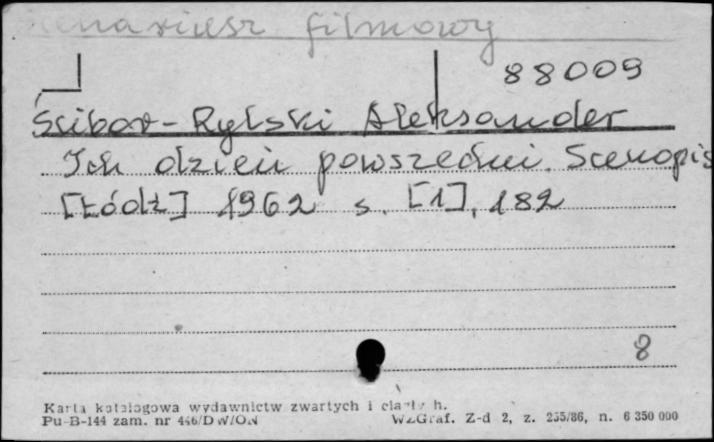 Scenariusz filmowy
88009
Ścibor-Rylski Aleksander
Ich dzień powszedni. Scenopis
[Łódź] 1962 s. [1], 182
8
Karta katalogowa wydawnictw zwartych i ciągłych.
Pu-B-144 zam. nr 446/DW/ON WZGraf. Z-d 2, z. 255/86, n. 6 350 000